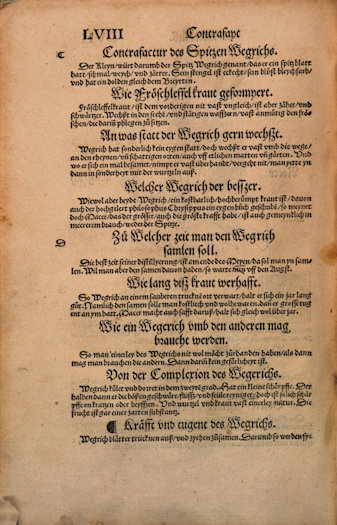 LVIII Contrafayt
Contrafactur des Spitzen Wegrichs.
Der Kleyn/würt darumb der Spitz Wegrich genant/das er ein spitzblatt
hatt/schmal/weych/vnd zärter. Sein stengel ist eckecht/sein blüst bleychfarb/
vnd hat ein dolden gleich dem Breytten.
Wie Fröschleffel kraut geformyert.
Fröschleffelkraut/ist dem vorderigen nit vast vngleich/ist aber zäher/vnd
schwärtzer. Wechßt in den sechē/vnd stätigen wassern/vast anmütig den frö-
schen/die darüff pflegen zů sitzen.
An was statt der Wegrich gern wechßt.
Wegrich hat sonderlich kein eygen statt/doch wechßt er vast vmb die wege/
an den rheynen/vñ schattigen orten/auch vff etlichen matten vñ gärten. Vnd
wo er sich ein mal besamet/nimpt er vast überhandt/vergeht nit/man yette yn
dann in sonderheyt mit der wurtzeln auß.
Welcher Wegrich der besszer.
Wiewol aber beyde Wegrich/ein kostbarlich/hochberümpt kraut ist/dauon
auch der hochgelert philosophus Chrysippus ein eygen bůch geschribē/so meynet
doch Macer/das der grösser/auch die gröste krafft habe/ist auch gemeynklich in
meererem brauch/weder der Spitze.
Zů Welcher zeit man den Wegrich
samlen soll.
Die best zeit seiner distillyerung/ist am ende des Meyen/da sol man yn sam-
len. Wil man aber den samen dauon haben/so warte biß vff den Augst.
Wie lang diß kraut werhafft.
So Wegrich an einem sauberen trucknē ort verwart/halt er sich ein jar lang
gůt. Namlich den samen solle man kostlich vnd wolbewaren/dañ er grosse tug-
ent an ym hatt. Macer macht auch safft daruß/halt sich gleich wol über jar.
Wie ein Wegerich vmb den anderen mag
braucht werden.
So man einerley des Wegrichs nit wol möcht zůrhanden haben/als dann
mag man brauchen die andern. Dann darüñ kein geförlicheyt ist.
Von der Complexion des Wegerichs.
Wegrich kület vnd dörret in dem zweytē grad. Hat ein kleine schärpffe. Der
halben dann er die bösen geschwär/flüssz/vnd feüle reyniget/doch ist solich schär
pffe on kratzen oder beysszen. Vnd wurtzel vnd kraut vast einerley natur. Die
frucht ist gar einer zarten substantz.
¶ Kräfft vnd tugent des Wegrichs.
Wegrich bletter trücknen auß/vnd zyehen zůsamen. Darumb so werden sye